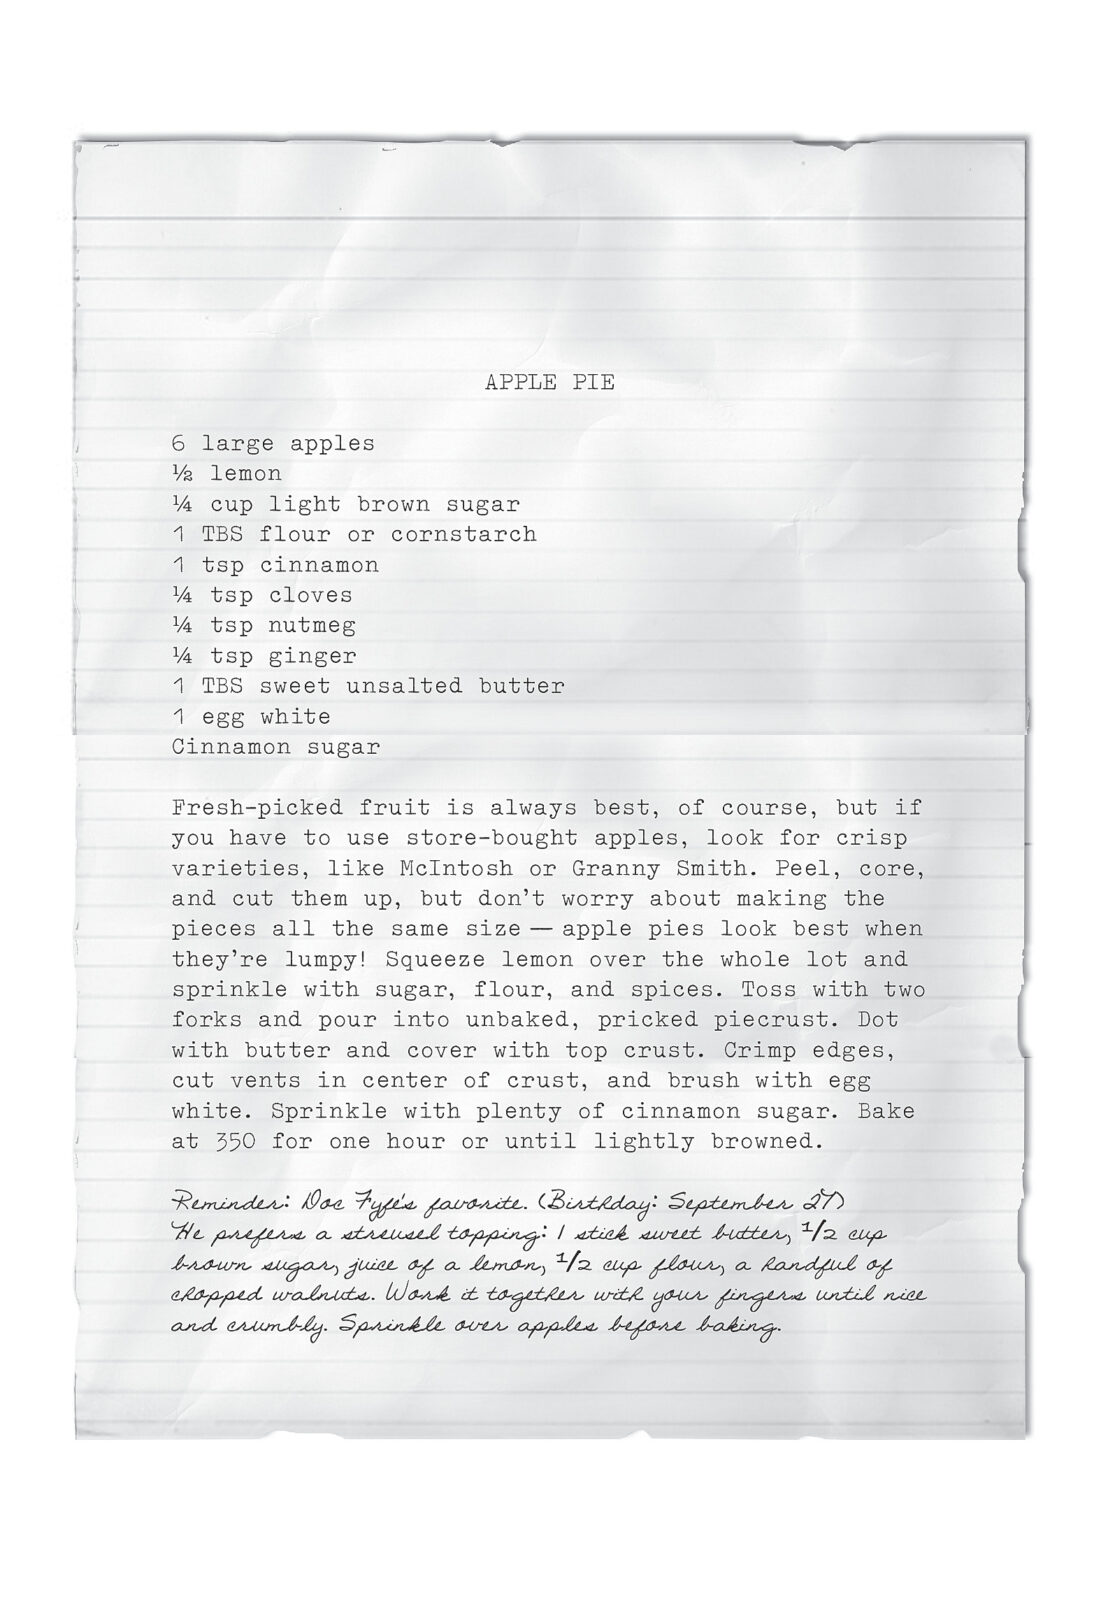 APPLE PIE
6 large apples
½ lemon
¼ cup light brown sugar
1 TBS flour or cornstarch
1 tsp cinnamon
¼ tsp cloves
¼ tsp nutmeg
¼ tsp ginger
1 TBS sweet unsalted butter
1 egg white
Cinnamon sugar
Fresh-picked fruit is always best, of course, but if
you have to use store-bought apples, look for crisp
varieties, like McIntosh or Granny Smith. Peel, core,
and cut them up, but don't worry about making the
pieces all the same size — apple pies look best when
they're lumpy! Squeeze lemon over the whole lot and
sprinkle with sugar, flour, and spices. Toss with two
forks and pour into unbaked, pricked piecrust. Dot
with butter and cover with top crust. Crimp edges,
cut vents in center of crust, and brush with egg
white. Sprinkle with plenty of cinnamon sugar. Bake
at 350 for one hour or until lightly browned.
Reminder: Doc Fyfe's favorite. (Birthday: September 27)
He prefers a streusel topping: 1 stick sweet butter, 1/2 cup
brown sugar, juice of a lemon, 1/2 cup flour, a handful of
chopped walnuts. Work it together with your fingers until nice
and crumbly. Sprinkle over apples before baking.